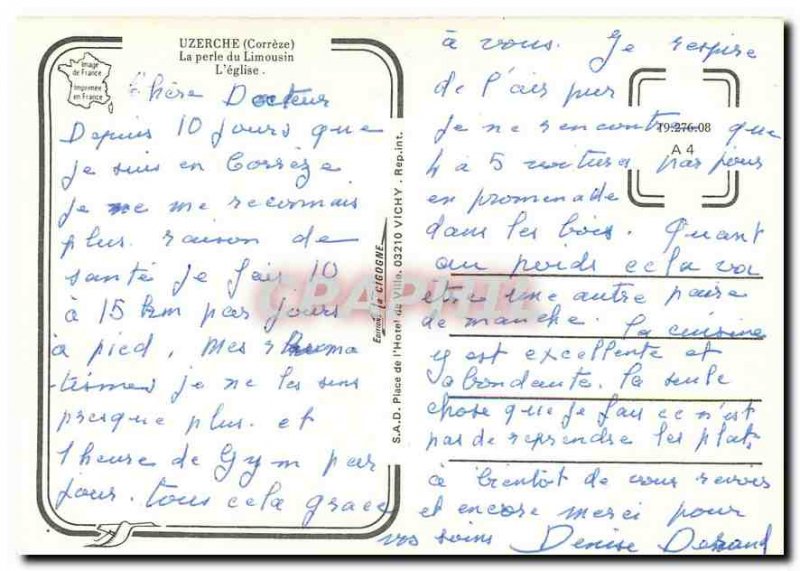 UZERCHE (Corrèze)
La perle du Limousin
L'église.
Image
de France
Imprimée
en France
Chère Docteur
Depuis 10 jours que
je suis en Corrèze
je ne me reconnais
plus. raison de
santé je fais 10
à 15 km par jours
à pied, mes rhuma
-tismes je ne les sens
presque plus. et
1 heure de Gym par
jour. tous cela grace
à vous. Je respire
de l'air pur
je ne rencontre que
4 à 5 voitures par jour
en promenade
dans les bois. Quant
au poids cela va
etre une autre paire
de manche. la cuisine
y est excellente et
abondante. la seule
chose que je fais ce n'est
pas de reprendre les plats
à bientôt de vous revoir
et encore merci pour
vos soins Denise
19.276.08
A 4
Editions la CIGOGNE
S.A.D. Place de l'Hotel de Ville. 03210 VICHY. Rep.int.
CPAPHIL